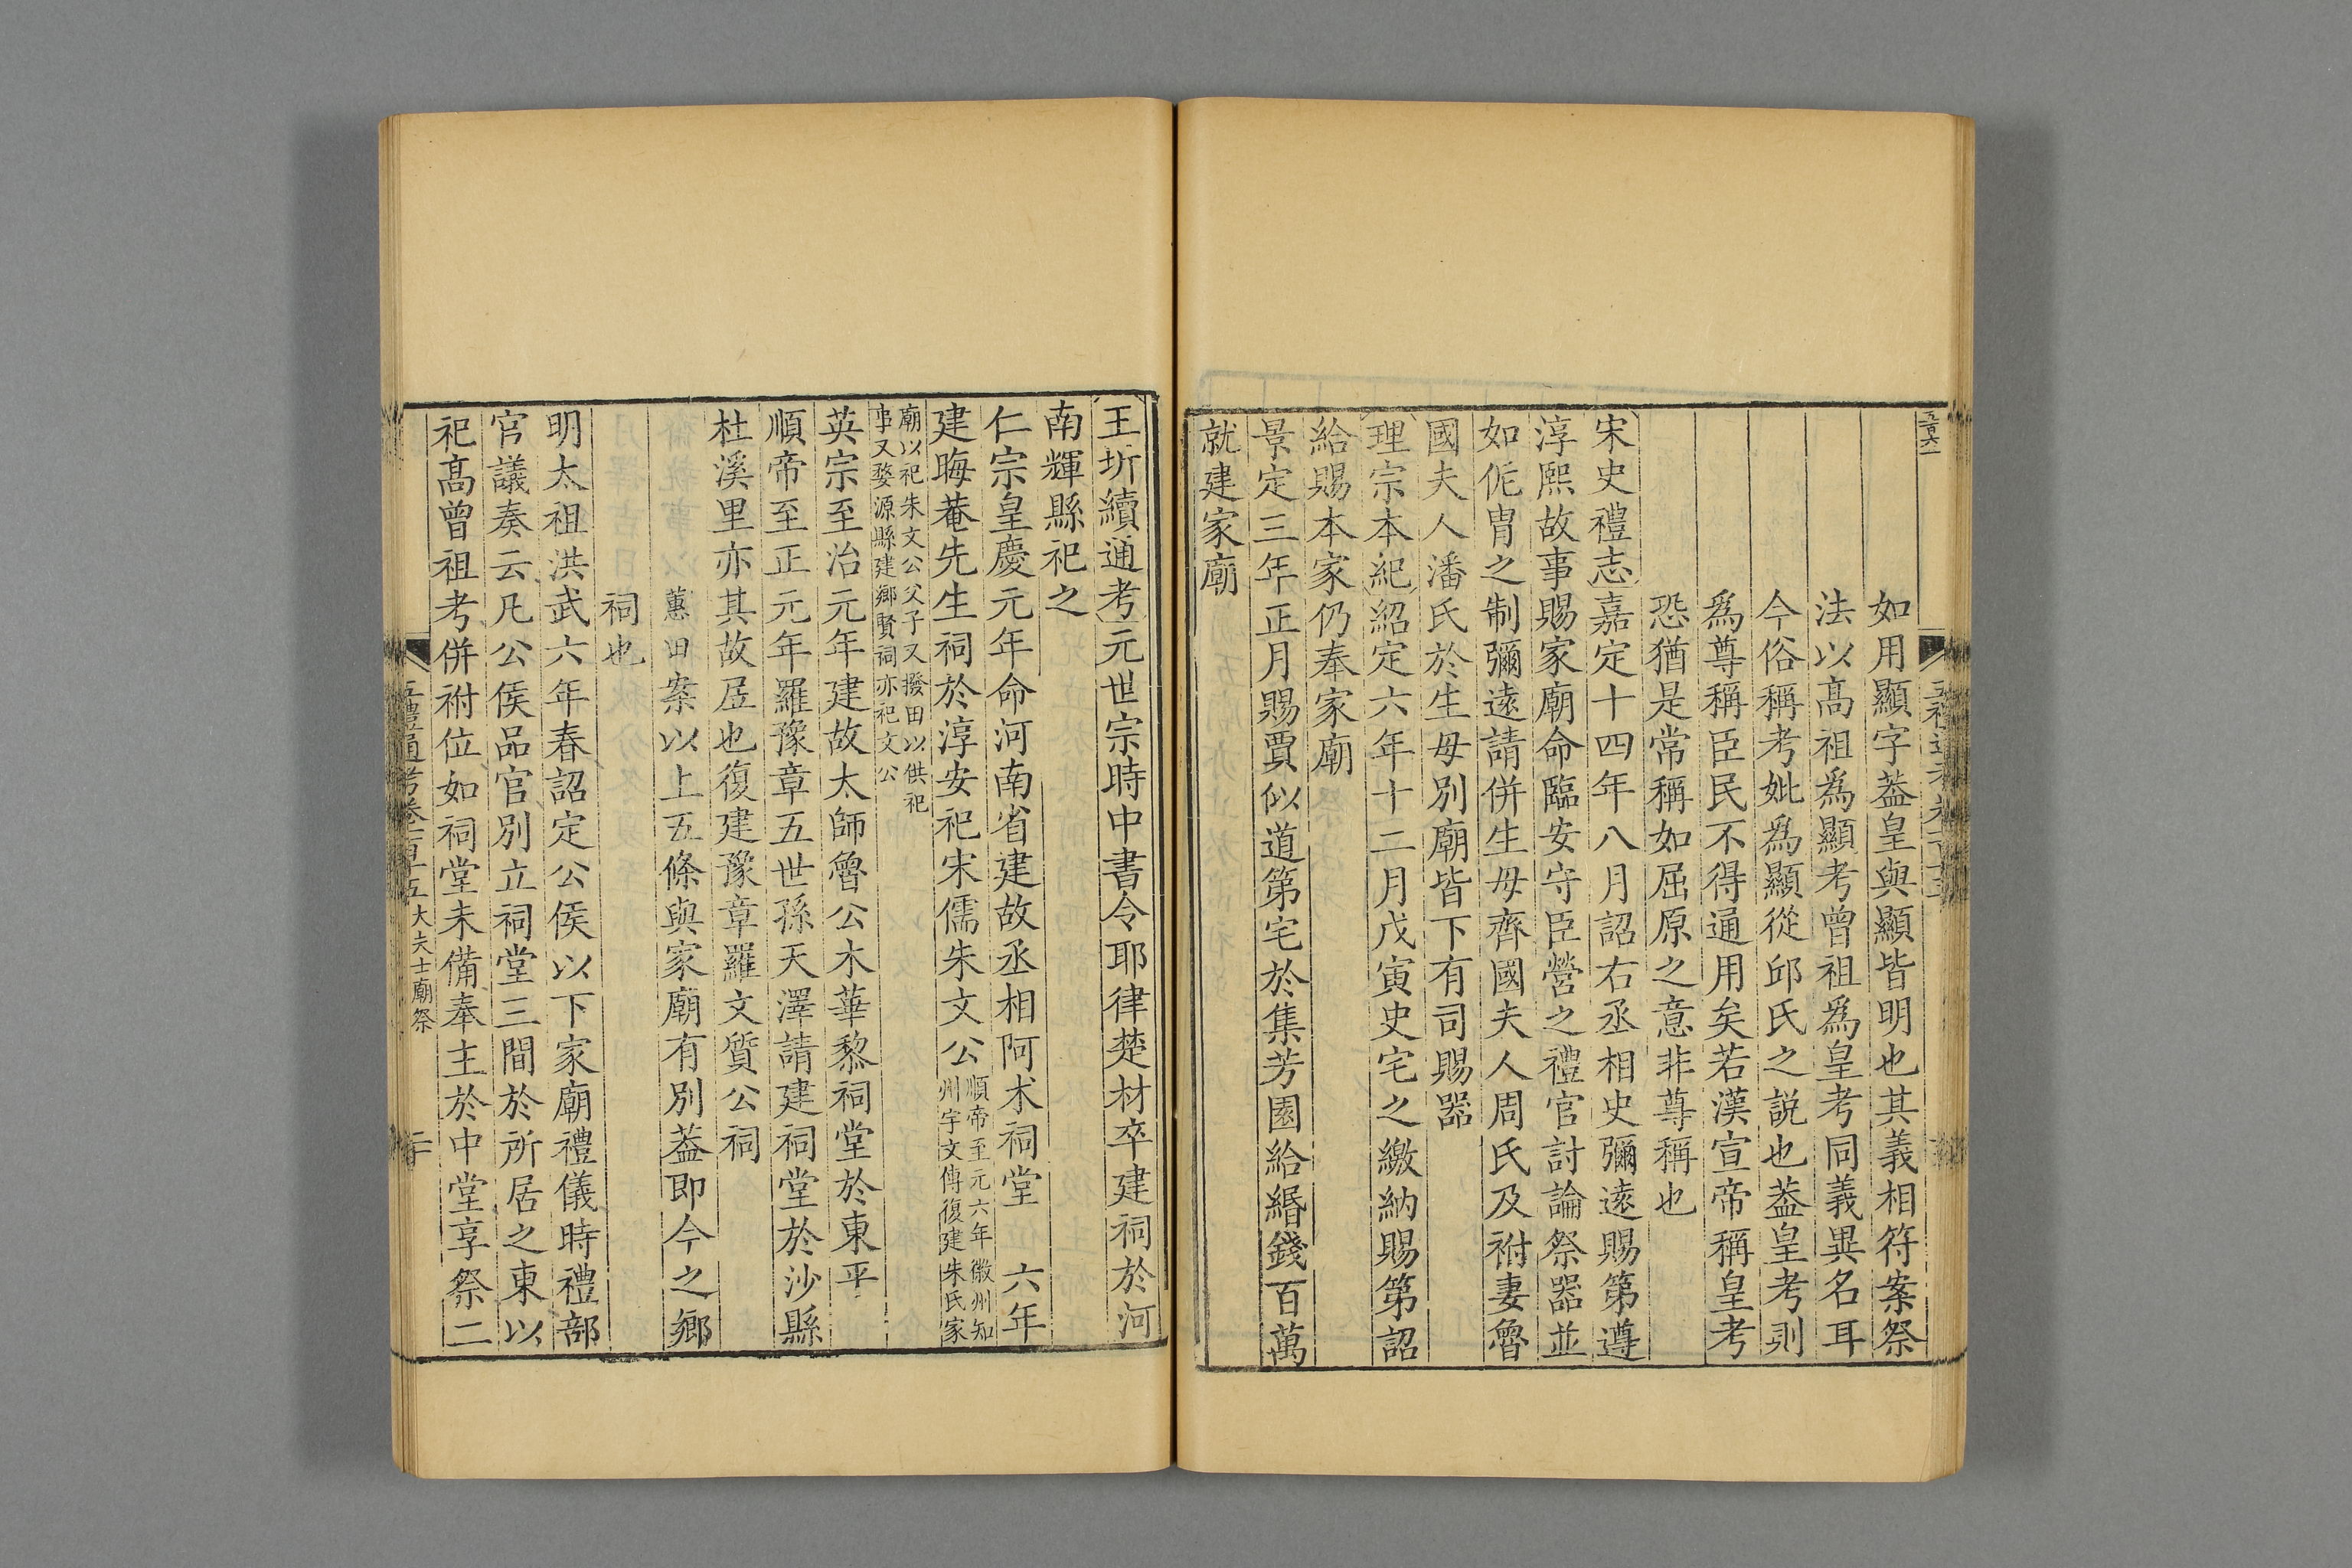 如用顯字葢皇與顯皆明也其義相符案祭
法以髙祖爲顯考曾祖爲皇考同義異名耳
今俗稱考妣爲顯從邱氏之説也葢皇考則
爲尊稱臣民不得通用矣若漢宣帝稱皇考
恐猶是常稱如屈原之意非尊稱也
宋史禮志嘉定十四年八月詔右丞相史彌遠賜第遵
淳熙故事賜家廟命臨安守臣營之禮官討論祭器並
如侂冑之制彌遠請併生母齊國夫人周氏及祔妻魯
國夫人潘氏於生母別廟皆下有司賜器
理宗本紀紹定六年十二月戊寅史宅之繳納賜第詔
給賜本家仍奉家廟
景定三年正月賜賈似道第宅於集芳園給緡錢百萬
就建家廟
王圻續通考元世宗時中書令耶律楚材卒建祠於河
南輝縣祀之
仁宗皇慶元年命河南省建故丞相阿术祠堂 六年
建晦菴先生祠於淳安祀宋儒朱文公順帝至元六年徽州知
州字文傳復建朱氏家
廟以祀朱文公父子又撥田以供祀
事又婺源縣建鄉賢祠亦祀文公
英宗至治元年建故太師魯公木華黎祠堂於東平
順帝至正元年羅豫章五世孫天澤請建祠堂於沙縣
杜溪里亦其故居也復建豫章羅文質公祠
蕙田案以上五條與家廟有別葢即今之鄉
祠也
明太祖洪武六年春詔定公侯以下家廟禮儀時禮部
官議奏云凡公侯品官別立祠堂三間於所居之東以
祀髙曾祖考併祔位如祠堂未備奉主於中堂享祭二
五禮通考卷一百十五 大夫士廟祭